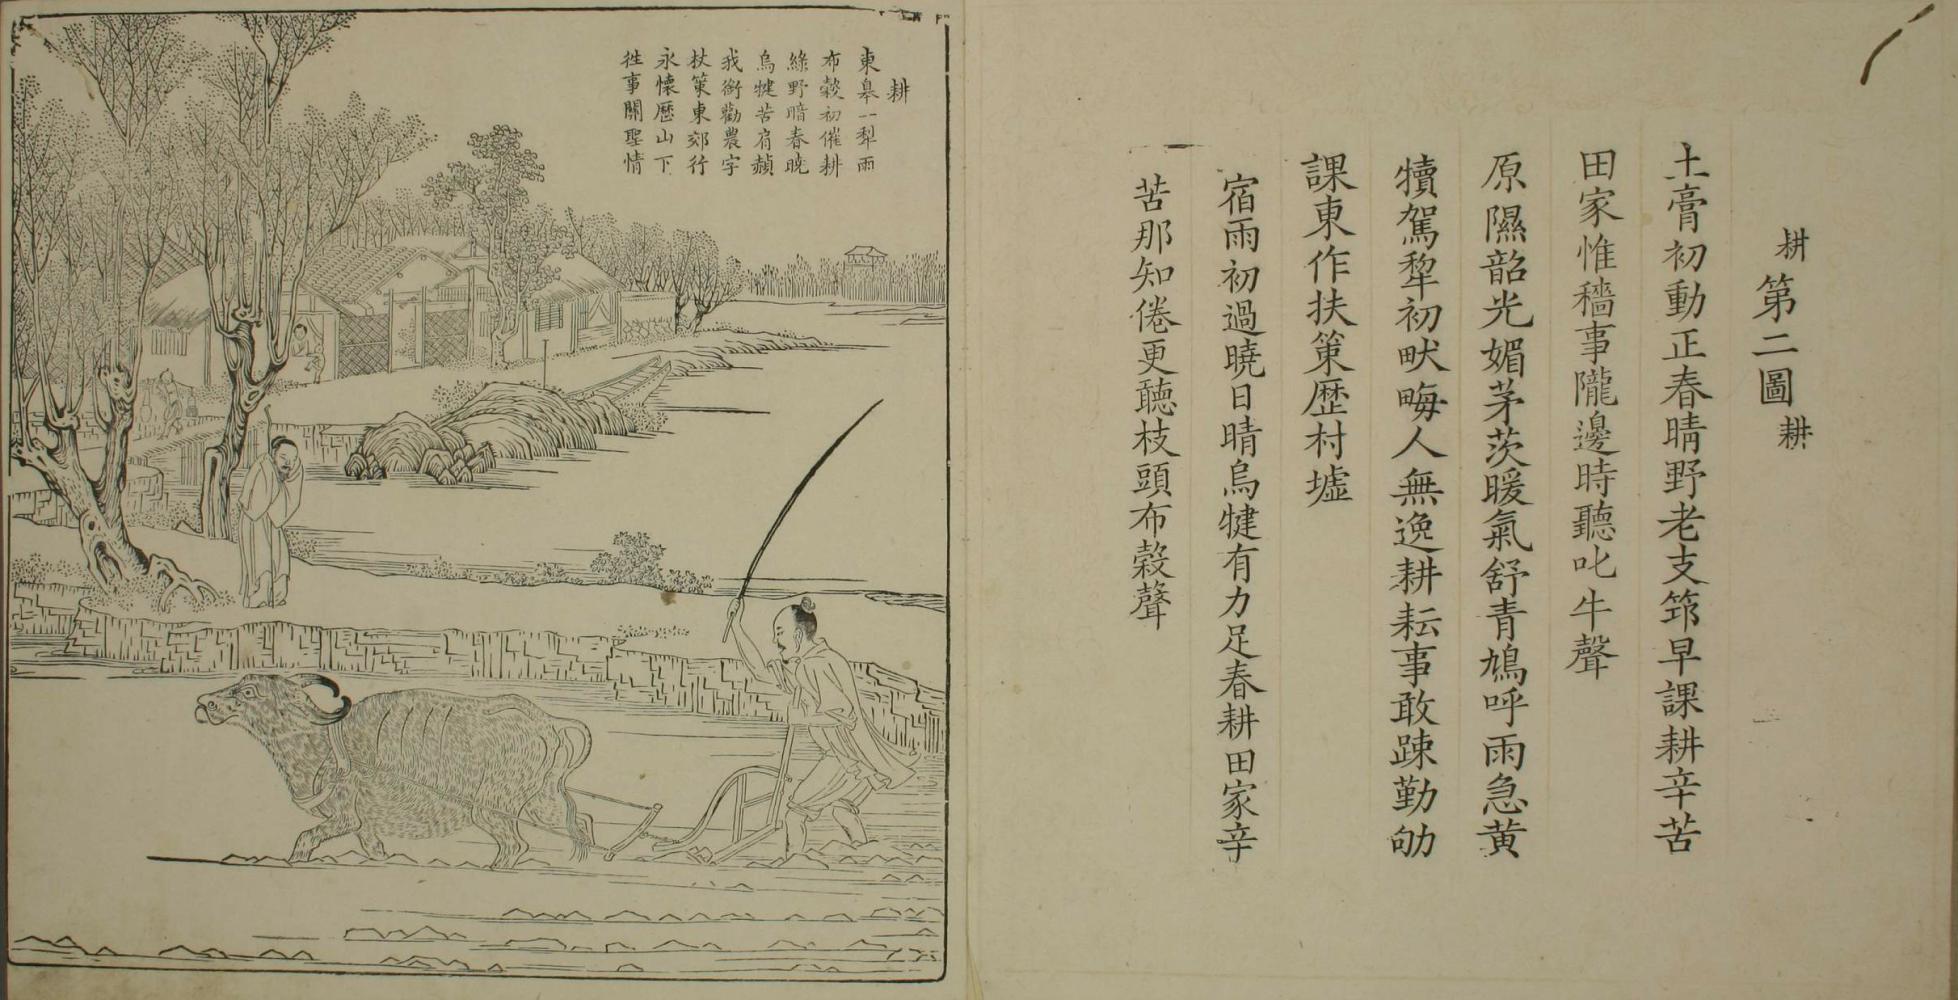 耕第二圖耕
土膏初動正春晴野老支筇早課耕辛苦
田家惟穡事隴邊時聽叱牛聲
原隰韶光媚茅茨暖氣舒青鳩呼雨急黄
犢駕犂初畎畮人無逸耕耘事敢踈勤劬
課東作扶筞歴村墟
宿雨初過曉日晴烏犍有力足春耕田家辛
苦那知倦更聽枝頭布穀聲
耕
東皋一犁雨
布穀初催耕
綠野暗春曉
烏犍苦肩赬
我銜勸農字
杖筞東郊行
永懷歷山下
徃事關聖情